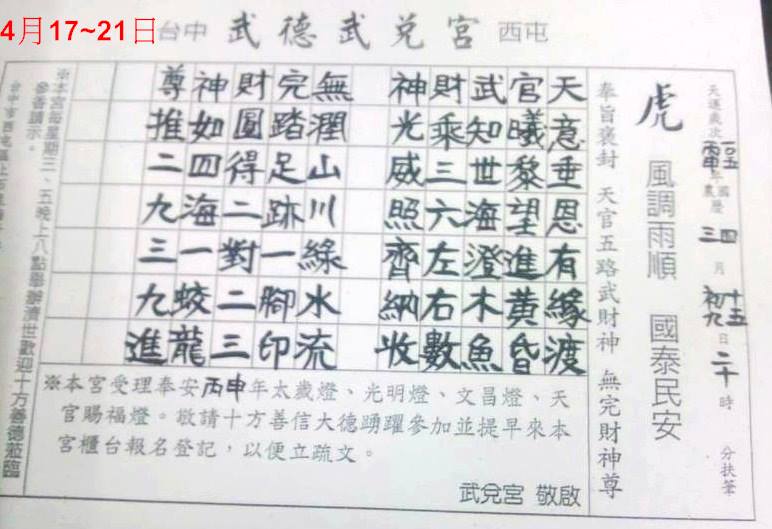 4月17~21日
台中 武德武兌宮 西屯
天運歲次一〇五丙申年國農曆四三月十五初九日二十時 分扶筆
虎 風調雨順 國泰民安
奉旨褒封 天官五路武財神 無完財神尊
天意垂恩有緣渡
官曦黎望進黃昏
武知世海澄木魚
財乘三六左右數
神光威照齊納收
無潤山川綠水流
完踏足跡一腳印
財圓得二對二三
神如四海一蛟龍
尊推二九三九進
※本宮受理奉安丙申年太歲燈、光明燈、文昌燈、天
官賜福燈。敬請十方善信大德踴躍參加並提早來本
宮櫃台報名登記，以便立疏文。
武兌宮 敬啟
※本宮每星期三、五晚上八點舉辦濟世歡迎十方善德蒞臨
參香請示。
台中市西屯區上石